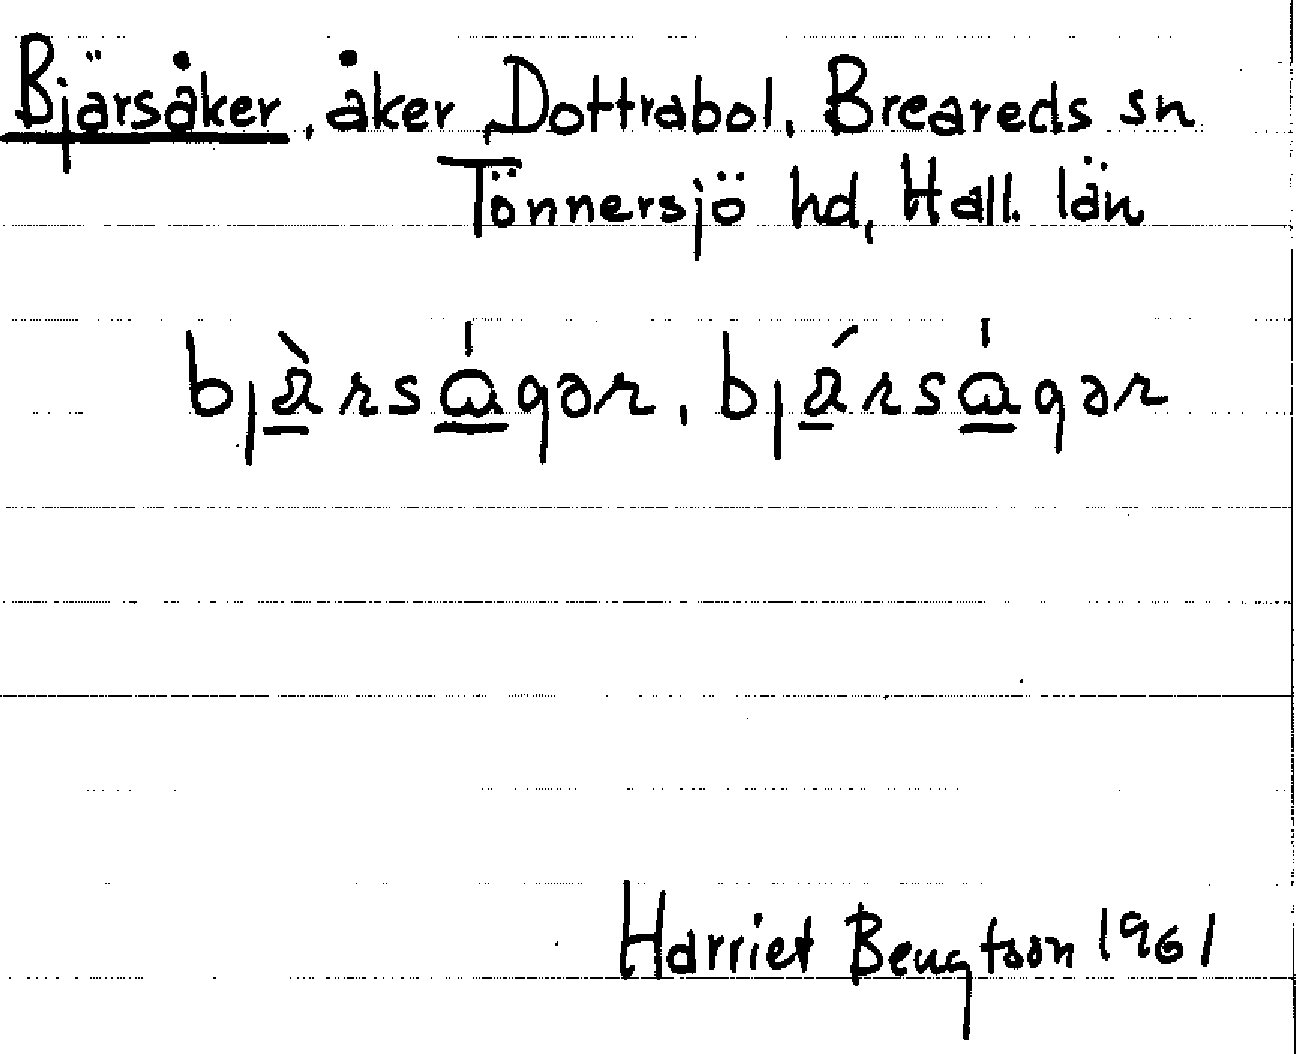 Bjärsåker, åker, Dottrabol, Breareds sn
Tönnersjö hd, Hall. län
bjàrsågər, bjársågər
Harriet Bengtson 1961